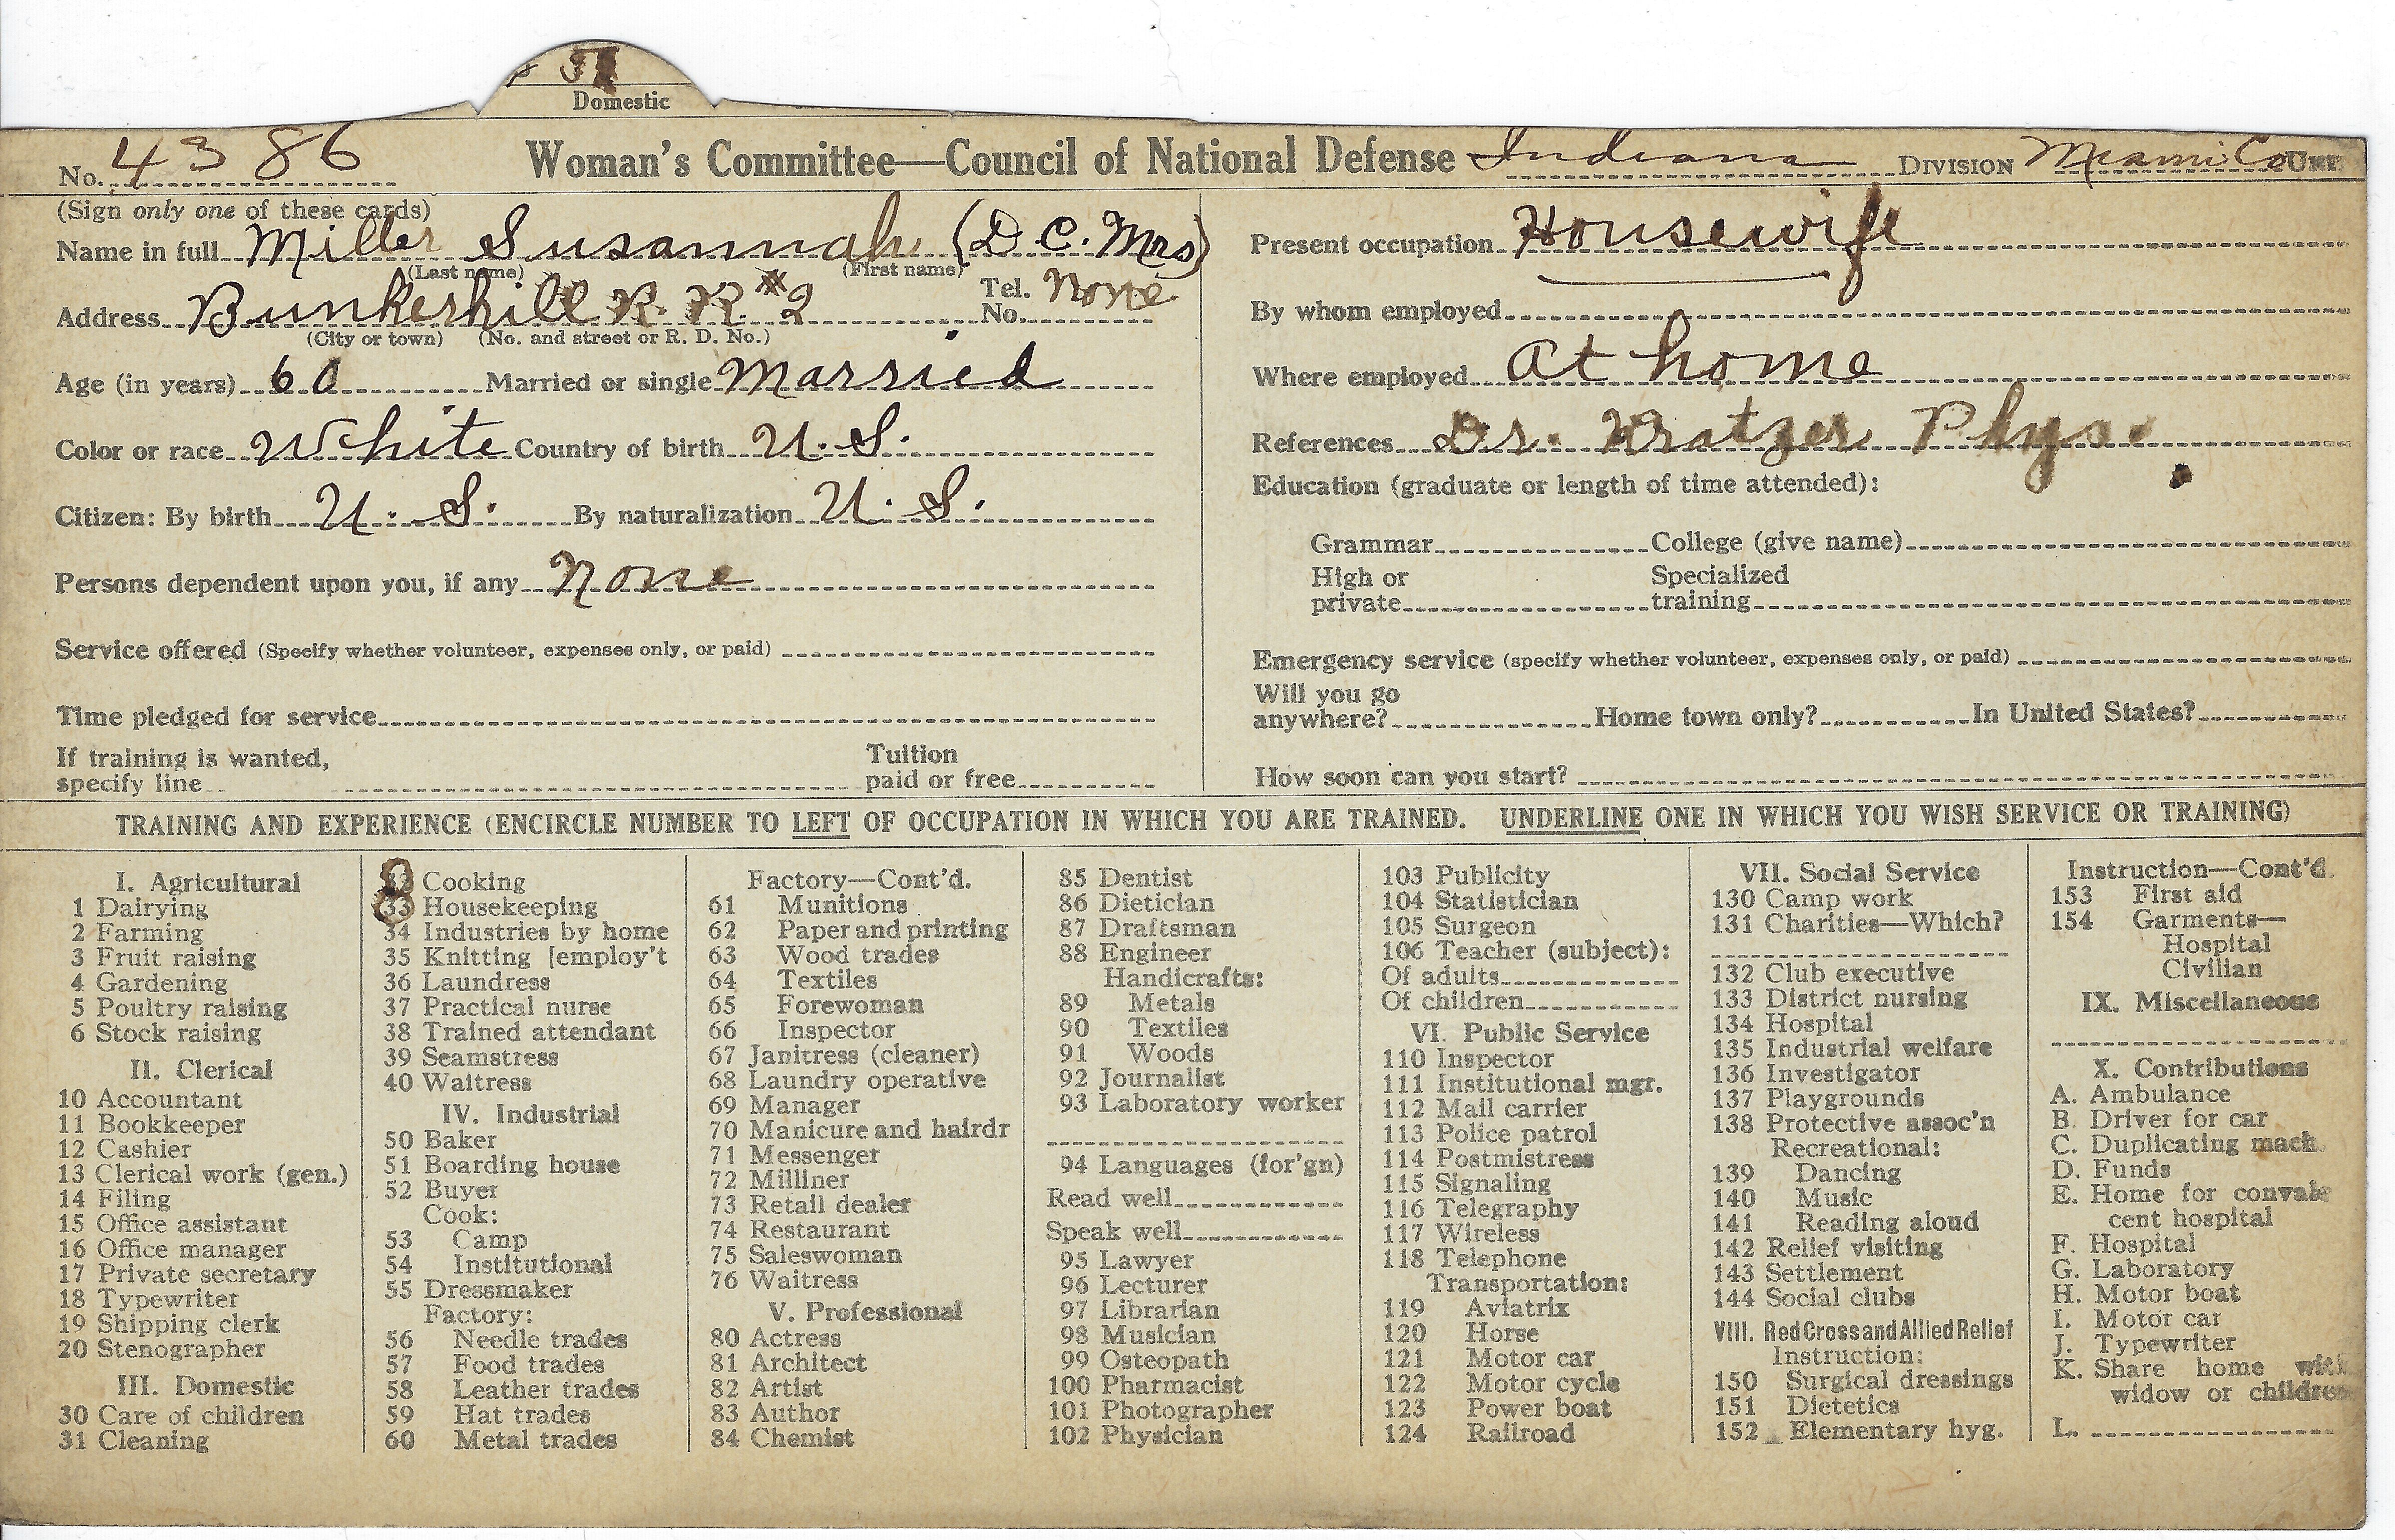 Domestic
No. 4386 Woman's Committee—Council of National Defense Indiana DIVISION Miami Co UNIT
(Sign only one of these cards)
Name in full Miller Susannah (D.C. Mrs)
(Last name) (First name)
Address Bunkerhill R. R. #2 Tel. No. None
(City or town) (No. and street or R. D. No.)
Age (in years) 60 Married or single Married
Color or race White Country of birth U.S.
Citizen: By birth U.S. By naturalization U.S.
Persons dependent upon you, if any None
Service offered (Specify whether volunteer, expenses only, or paid)
Time pledged for service
If training is wanted,
specify line
Tuition
paid or free
Present occupation Housewife
By whom employed
Where employed at home
References Dr. Kratzer Phys.
Education (graduate or length of time attended):
Grammar College (give name)
High or
private
Specialized
training
Emergency service (specify whether volunteer, expenses only, or paid)
Will you go
anywhere? Home town only? In United States?
How soon can you start?
TRAINING AND EXPERIENCE (ENCIRCLE NUMBER TO LEFT OF OCCUPATION IN WHICH YOU ARE TRAINED. UNDERLINE ONE IN WHICH YOU WISH SERVICE OR TRAINING)
I. Agricultural
1 Dairying
2 Farming
3 Fruit raising
4 Gardening
5 Poultry raising
6 Stock raising
II. Clerical
10 Accountant
11 Bookkeeper
12 Cashier
13 Clerical work (gen.)
14 Filing
15 Office assistant
16 Office manager
17 Private secretary
18 Typewriter
19 Shipping clerk
20 Stenographer
III. Domestic
30 Care of children
31 Cleaning
32 Cooking
33 Housekeeping
34 Industries by home
35 Knitting [employ't
36 Laundress
37 Practical nurse
38 Trained attendant
39 Seamstress
40 Waitress
IV. Industrial
50 Baker
51 Boarding house
52 Buyer
Cook:
53 Camp
54 Institutional
55 Dressmaker
Factory:
56 Needle trades
57 Food trades
58 Leather trades
59 Hat trades
60 Metal trades
Factory—Cont'd.
61 Munitions
62 Paper and printing
63 Wood trades
64 Textiles
65 Forewoman
66 Inspector
67 Janitress (cleaner)
68 Laundry operative
69 Manager
70 Manicure and hairdr
71 Messenger
72 Milliner
73 Retail dealer
74 Restaurant
75 Saleswoman
76 Waitress
V. Professional
80 Actress
81 Architect
82 Artist
83 Author
84 Chemist
85 Dentist
86 Dietician
87 Draftsman
88 Engineer
Handicrafts:
89 Metals
90 Textiles
91 Woods
92 Journalist
93 Laboratory worker
94 Languages (for'gn)
Read well
Speak well
95 Lawyer
96 Lecturer
97 Librarian
98 Musician
99 Osteopath
100 Pharmacist
101 Photographer
102 Physician
103 Publicity
104 Statistician
105 Surgeon
106 Teacher (subject):
Of adults
Of children
VI. Public Service
110 Inspector
111 Institutional mgr.
112 Mail carrier
113 Police patrol
114 Postmistress
115 Signaling
116 Telegraphy
117 Wireless
118 Telephone
Transportation:
119 Aviatrix
120 Horse
121 Motor car
122 Motor cycle
123 Power boat
124 Railroad
VII. Social Service
130 Camp work
131 Charities—Which?
132 Club executive
133 District nursing
134 Hospital
135 Industrial welfare
136 Investigator
137 Playgrounds
138 Protective assoc'n
Recreational:
139 Dancing
140 Music
141 Reading aloud
142 Relief visiting
143 Settlement
144 Social clubs
VIII. Red Cross and Allied Relief
Instruction:
150 Surgical dressings
151 Dietetics
152 Elementary hyg.
Instruction—Cont'd.
153 First aid
154 Garments—
Hospital
Civilian
IX. Miscellaneous
X. Contributions
A. Ambulance
B. Driver for car
C. Duplicating mach.
D. Funds
E. Home for convales
cent hospital
F. Hospital
G. Laboratory
H. Motor boat
I. Motor car
J. Typewriter
K. Share home with
widow or children
L.